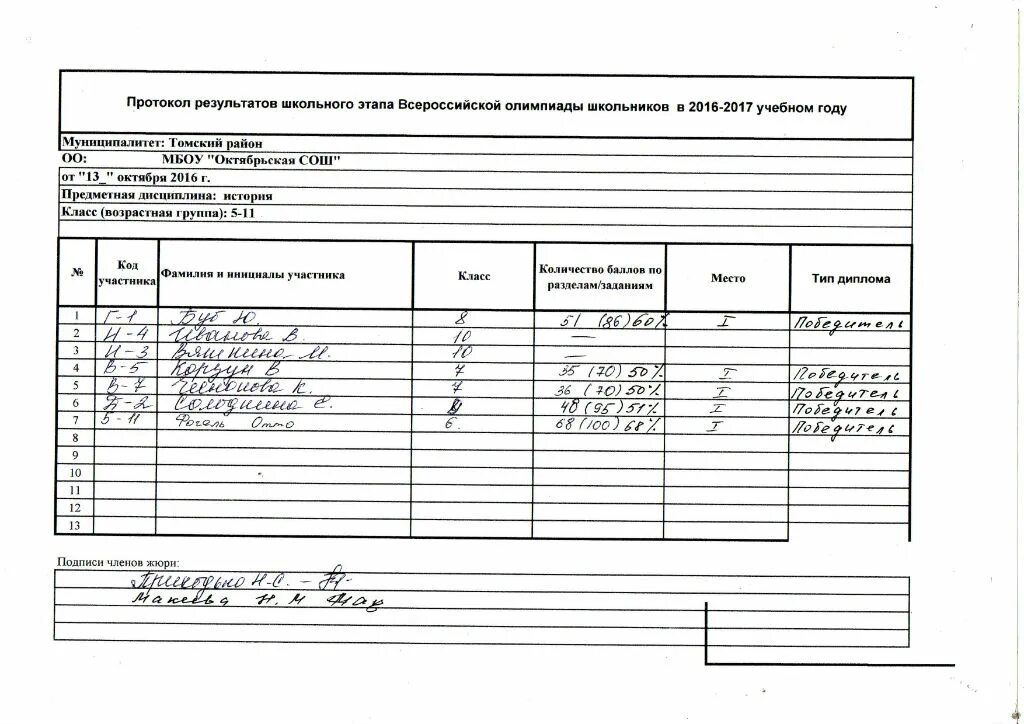 Протокол результатов школьного этапа Всероссийской олимпиады школьников в 2016-2017 учебном году
Муниципалитет: Томский район
ОО: МБОУ "Октябрьская СОШ"
от "13_" октября 2016 г.
Предметная дисциплина: история
Класс (возрастная группа): 5-11
№ Код участника Фамилия и инициалы участника Класс Количество баллов по разделам/заданиям Место Тип диплома
1 Г-1 Буб Ю. 8 51 (86) 60% I Победитель
2 И-4 Иванова В. 10 —
3 И-3 Вяткина М. 10 —
4 В-5 Корзун В 7 35 (70) 50% I Победитель
5 В-7 К. 7 36 (70) 50% I Победитель
6 Д-2 Солодкина Е. 48 (95) 51% I Победитель
7 Б-11 Фогель Отто 6. 68 (100) 68% I Победитель
8
9
10
11
12
13
Подписи членов жюри:
Приходько Н.С. –
Макеева Н. М Мак